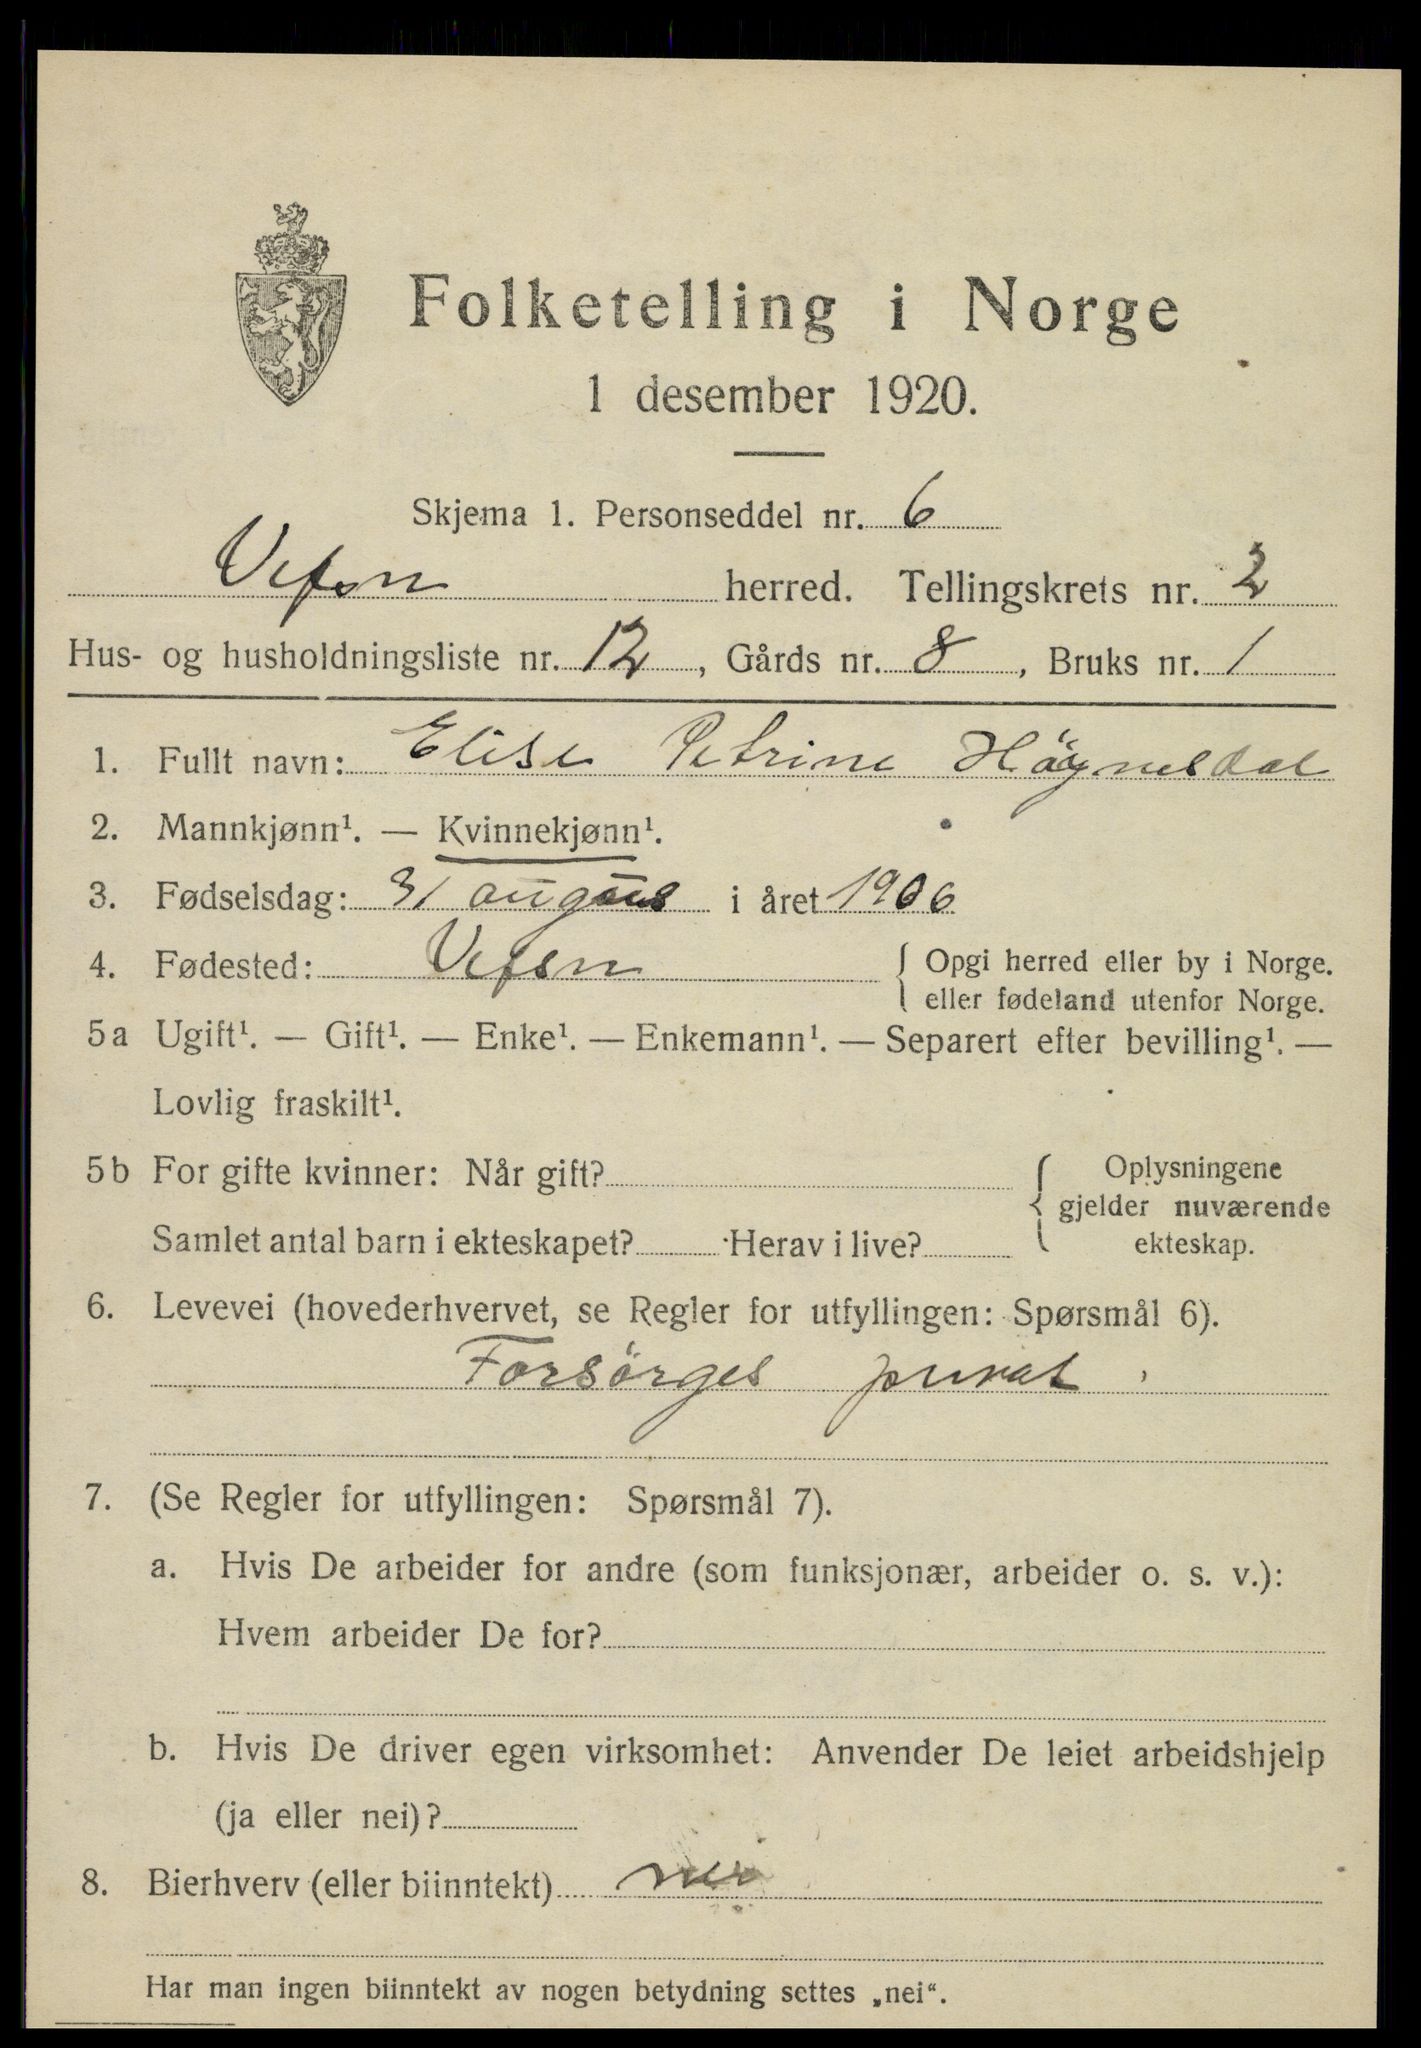 Folketelling i Norge
1 desember 1920.
Skjema 1. Personseddel nr. 6
Vefsn herred. Tellingskrets nr. 2
Hus- og husholdningsliste nr. 12, Gårds nr. 8, Bruks nr. 1
1. Fullt navn: Elise Petrine Høgnesdal
2. Mannkjønn¹. — Kvinnekjønn¹.
3. Fødselsdag: 31 augus i året 1906
4. Fødested: Vefsn { Opgi herred eller by i Norge.
eller fødeland utenfor Norge.
5a Ugift¹. — Gift¹. — Enke¹. — Enkemann¹. — Separert efter bevilling¹. —
Lovlig fraskilt¹.
5b For gifte kvinner: Når gift? { Oplysningene
gjelder nuværende
Samlet antal barn i ekteskapet? Herav i live? ekteskap.
6. Levevei (hovederhvervet, se Regler for utfyllingen: Spørsmål 6).
Forsörges privat
7. (Se Regler for utfyllingen: Spørsmål 7).
a. Hvis De arbeider for andre (som funksjonær, arbeider o. s. v.):
Hvem arbeider De for?
b. Hvis De driver egen virksomhet: Anvender De leiet arbeidshjelp
(ja eller nei)?
8. Bierhverv (eller biinntekt) nei
Har man ingen biinntekt av nogen betydning settes „nei“.